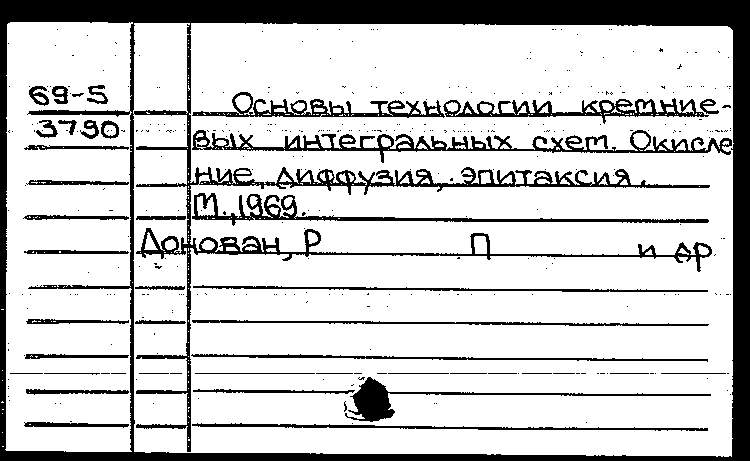 69-5
3790
Основы технологии кремние-
вых интегральных схем. Окисле
ние, диффузия, эпитаксия.
М., 1969.
Донован, Р П и др